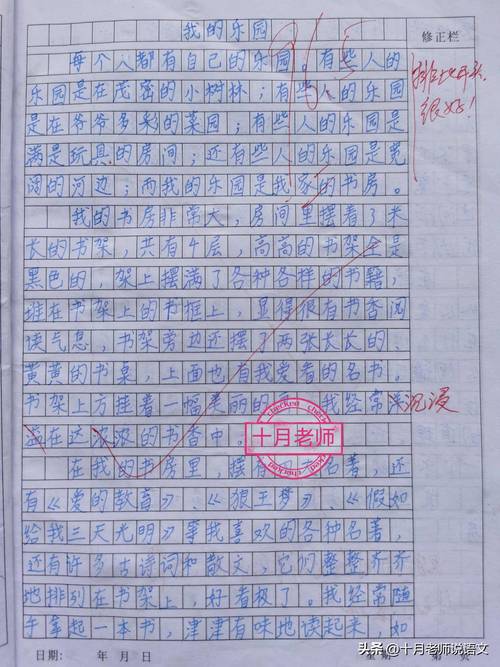 我的乐园
修正栏
每个人都有自己的乐园。有些人的
乐园是在茂密的小树林;有些人的乐园
是在爷爷多彩的菜园;有些人的乐园是
满是玩具的房间;还有些人的乐园是宽
阔的河边;而我的乐园是我家的书房。
排比开头
很好!
我的书房非常大,房间里摆着了米
长的书架,共有4层,高高的书架上是
黑色的,架上摆满了各种各样的书籍,
堆在书架上的书框上,显得很有书香阅
读气息,书架旁边还摆了两张长长的
黄黄的书桌,上面也有我爱看的名书。
书架上方挂着一幅美丽的 我经常沉
沉浸
溢在这浓浓的书香中。
十月老师
checked
在我的书房里,摆有 名著,还
有《爱的教育》、《狼王梦》、《假如
给我三天光明》等我喜欢的各种名著,
还有许多古诗词和散文,它们整整齐齐
地排列在书架上,好看极了。我经常随
手拿起一本书,津津有味地读起来,如
日期: 年 月 日
头条 @十月老师说语文